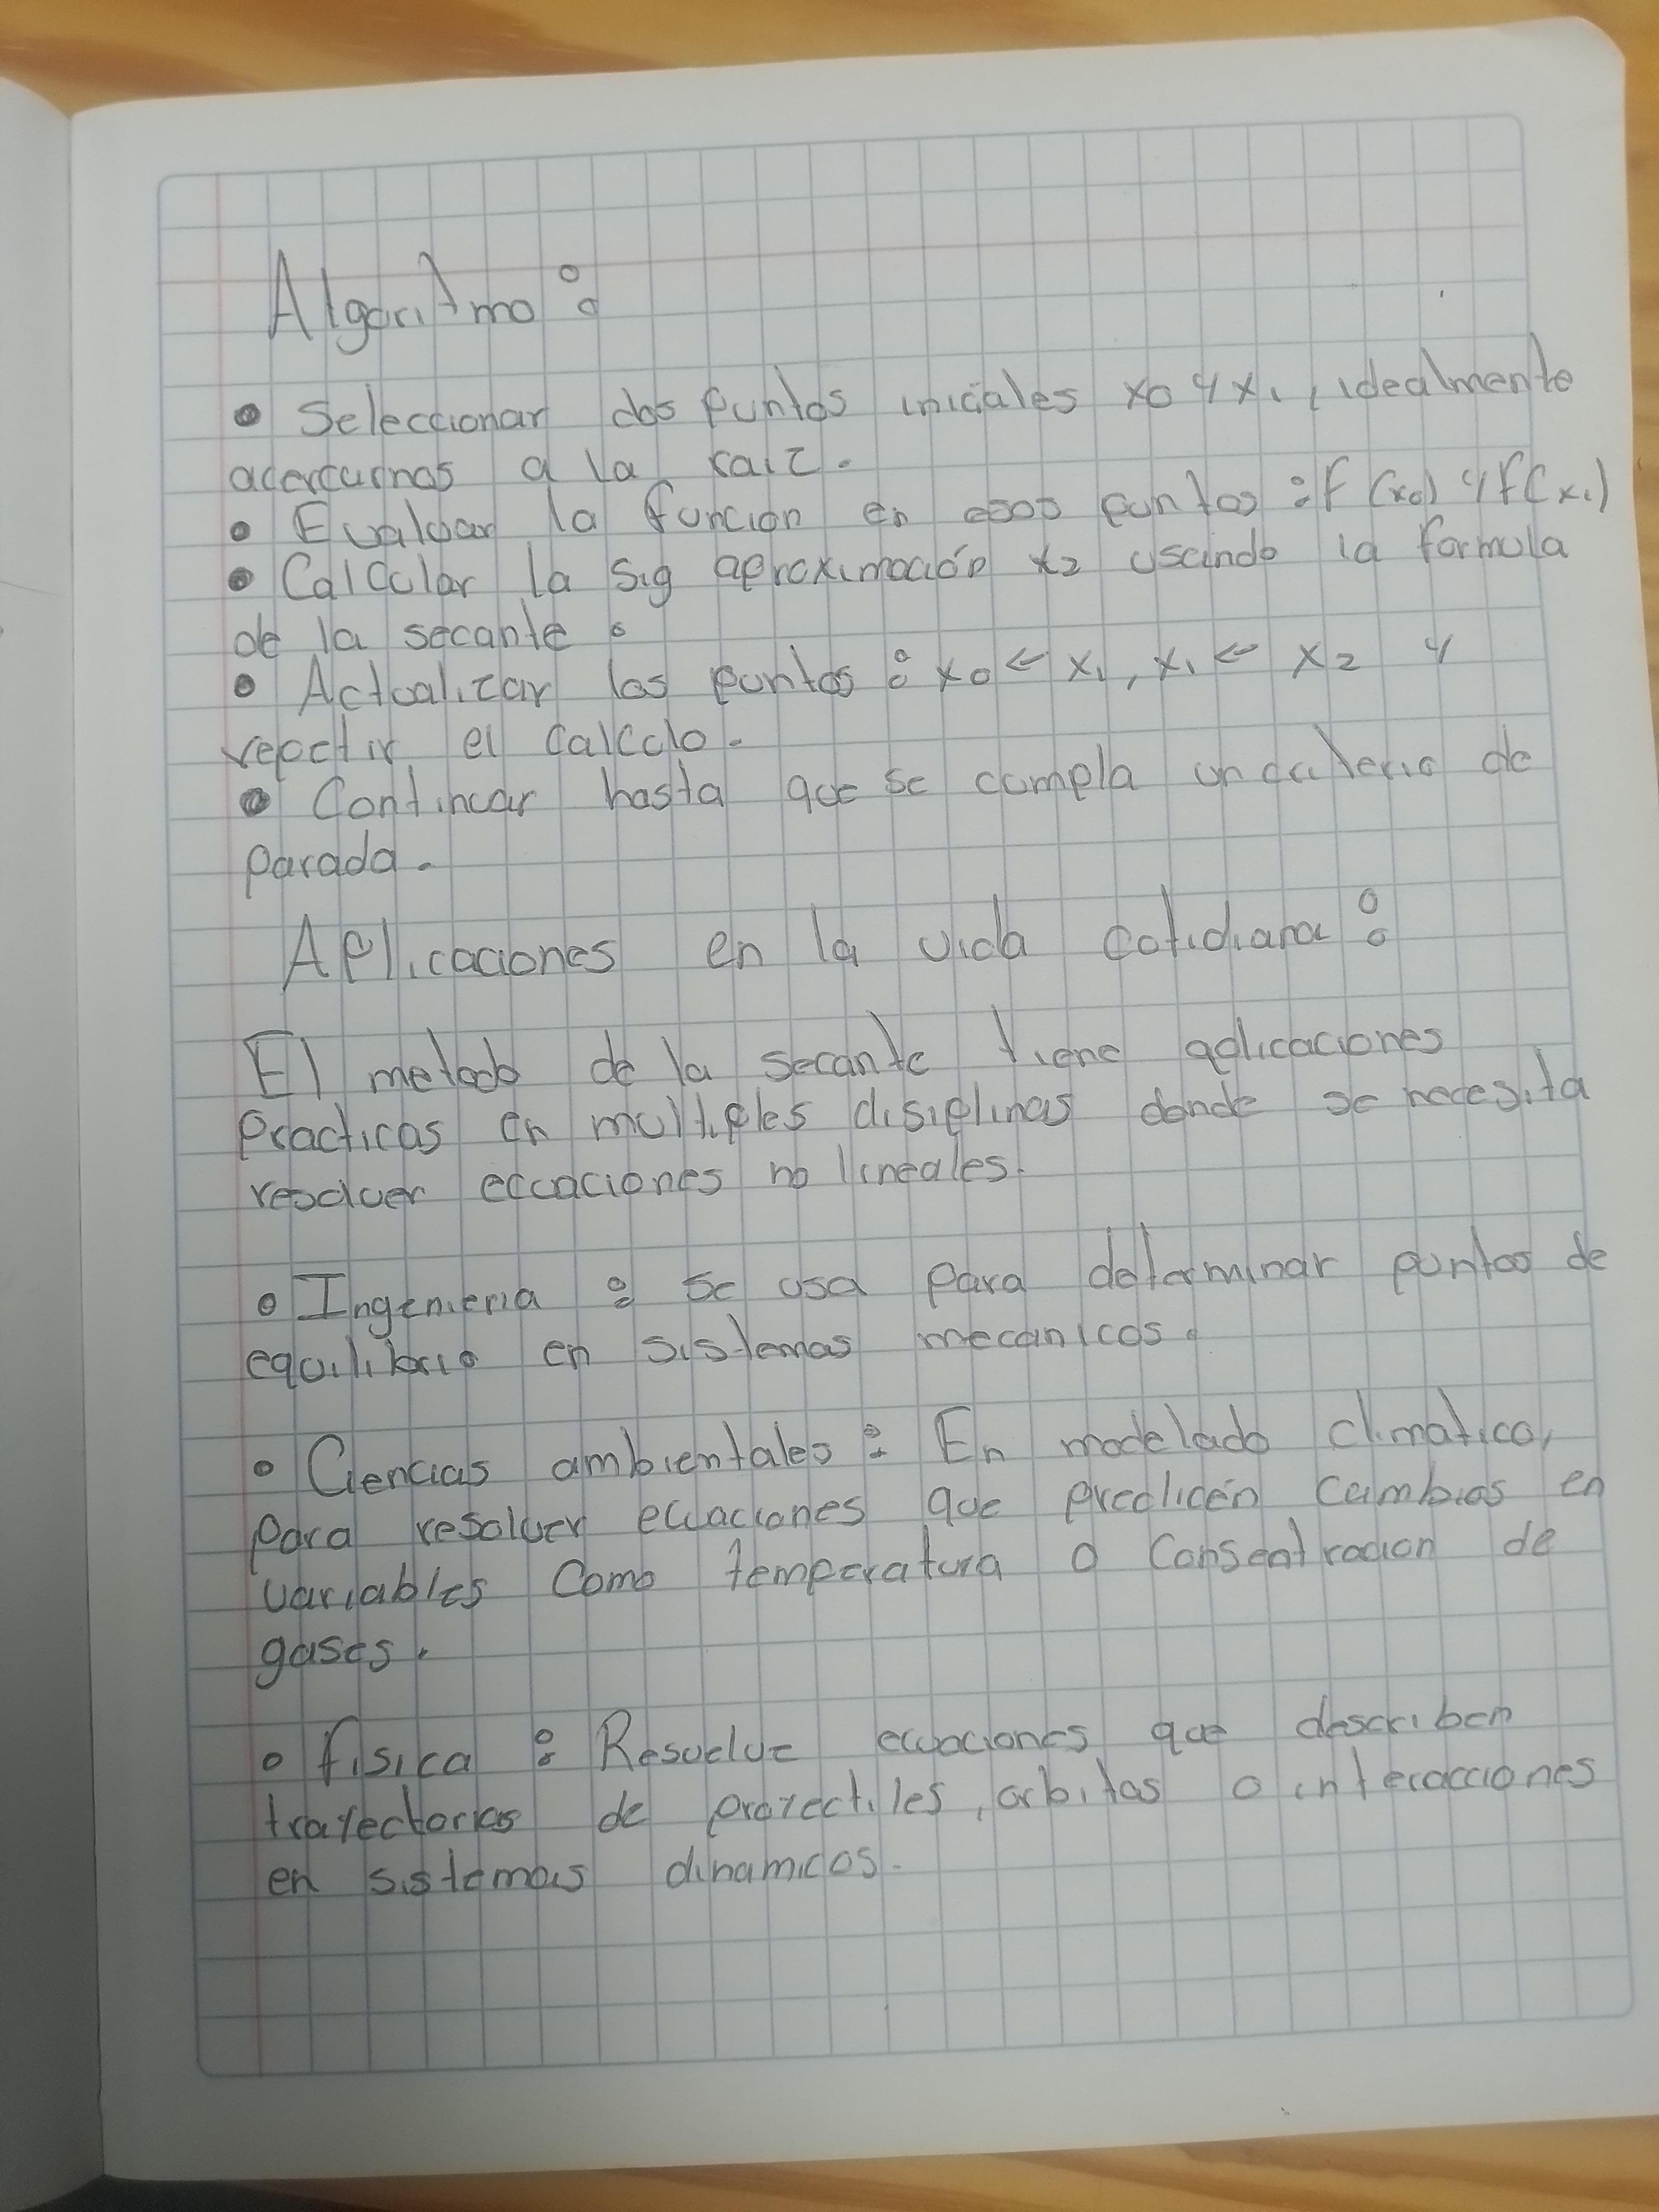 Algoritmo:
• Seleccionar dos puntos iniciales x0 y x1, idealmente
acercarnos a la raiz.
• Evaluar la función en esos puntos: f(x0) y f(x1)
• Calcular la sig aproximación x2 usando la formula
de la secante:
• Actualizar los puntos: x0 ← x1, x1 ← x2 y
repetir el calculo.
• Continuar hasta que se cumpla un criterio de
parada.
Aplicaciones en la vida cotidiana:
El metodo de la secante tiene aplicaciones
Practicas en multiples disiplinas donde se necesita
resolver ecuaciones no lineales.
• Ingenieria: Se usa para determinar puntos de
equilibrio en sistemas mecanicos.
• Ciencias ambientales: En modelado climatico,
para resolver ecuaciones que predicén cambios en
variables como temperatura o Consentracion de
gases.
• fisica: Resuelve ecuaciones que describen
trayectorias de proyectiles, orbitas o interacciones
en sistemas dinamicos.